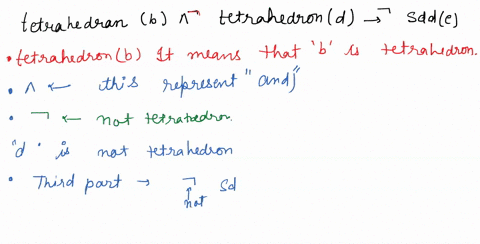 tetrahedran (b) ∧ ¬ tetrahedron(d) → ¬ sdd(e)
• tetrahedron(b) It means that 'b' is tetrahedron.
• ∧ ← this represent "and"
• ¬ ← not tetrahedron.
"d" is not tetrahedron
• Third part → ¬ Sd
not